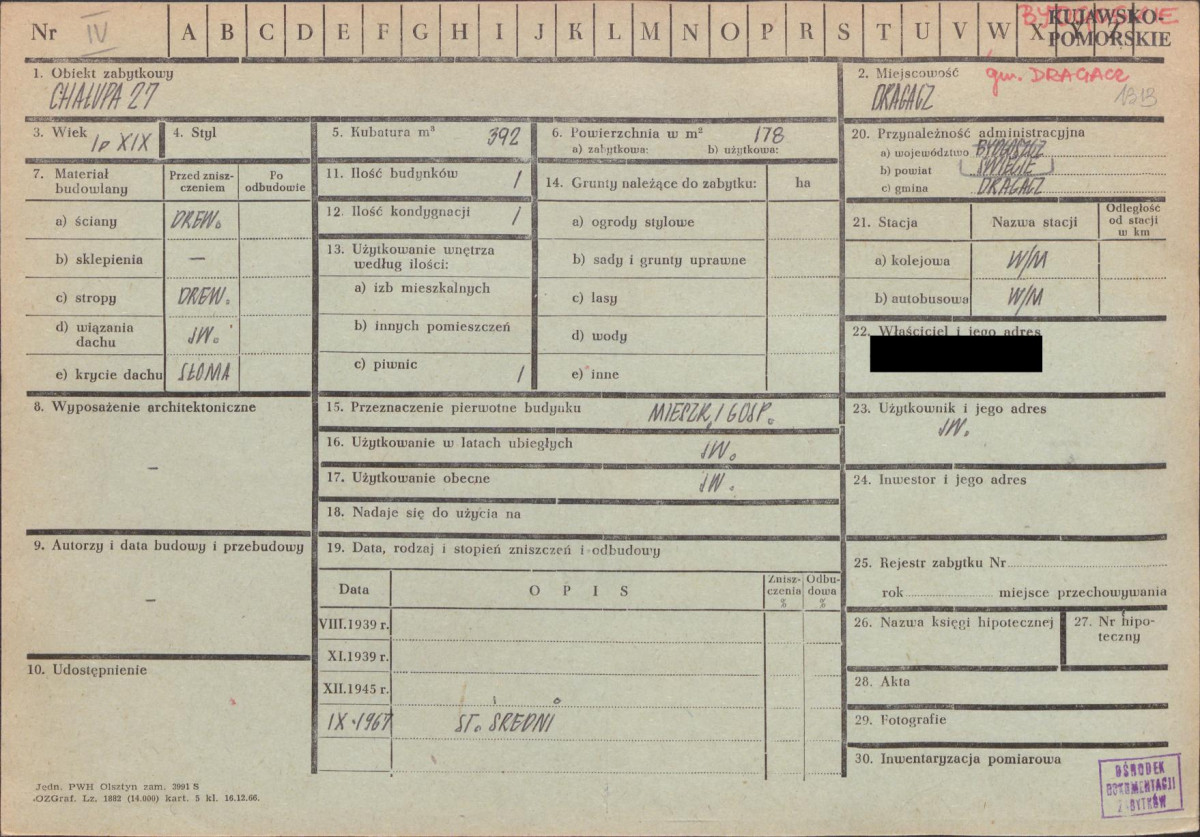 Nr IV A B C D E F G H I J K L M N O P R S T U V W X Y Z
KUJAWSKO-
POMORSKIE
1. Obiekt zabytkowy
CHAŁUPA 27
2. Miejscowość
gm. DRAGACZ
DRAGACZ
1313
3. Wiek
Ip XIX
4. Styl
5. Kubatura m³ 392
6. Powierzchnia w m² 178
a) zabytkowa: b) użytkowa:
20. Przynależność administracyjna
a) województwo BYDGOSZCZ
b) powiat ŚWIECIE
c) gmina DRAGACZ
7. Materiał
budowlany
Przed znisz-
czeniem
Po
odbudowie
a) ściany DREW.
b) sklepienia —
c) stropy DREW.
d) wiązania
dachu JW.
e) krycie dachu SŁOMA
11. Ilość budynków 1
12. Ilość kondygnacji 1
13. Użytkowanie wnętrza
według ilości:
a) izb mieszkalnych
b) innych pomieszczeń
c) piwnic 1
14. Grunty należące do zabytku: ha
a) ogrody stylowe
b) sady i grunty uprawne
c) lasy
d) wody
e) inne
21. Stacja
Nazwa stacji
Odległość
od stacji
w km
a) kolejowa W/M
b) autobusowa W/M
22. Właściciel i jego adres
8. Wyposażenie architektoniczne
—
15. Przeznaczenie pierwotne budynku MIESZK. I GOSP.
16. Użytkowanie w latach ubiegłych JW.
17. Użytkowanie obecne JW.
18. Nadaje się do użycia na
23. Użytkownik i jego adres
JW.
24. Inwestor i jego adres
9. Autorzy i data budowy i przebudowy
—
19. Data, rodzaj i stopień zniszczeń i odbudowy
Data
OPIS
Znisz-
czenia
%
Odbu-
dowa
%
VIII.1939 r.
XI.1939 r.
XII.1945 r.
IX.1967 ST. ŚREDNI
25. Rejestr zabytku Nr
rok miejsce przechowywania
26. Nazwa księgi hipotecznej
27. Nr hipo-
teczny
10. Udostępnienie
28. Akta
29. Fotografie
30. Inwentaryzacja pomiarowa
OŚRODEK
DOKUMENTACJI
ZABYTKÓW
Jedn. PWH Olsztyn zam. 3991 S
OZGraf. Lz. 1882 (14.000) kart. 5 kl. 16.12.66.